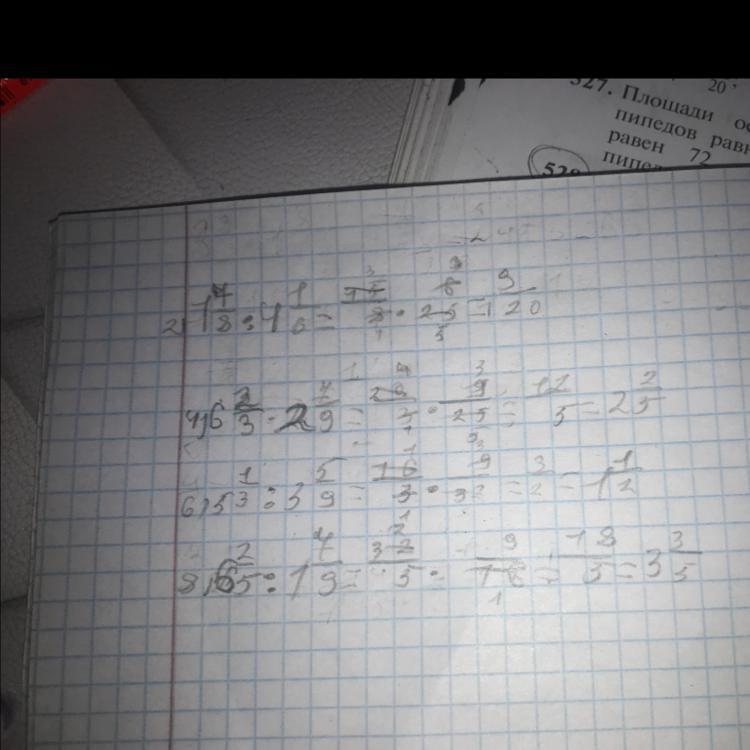 20,
527. Площади ос
пипедов равн
равен 72
528
пипед
2) 1 7/8 : 4 1/6 = 15/8 · 6/25 = 9/20
4) 6 2/3 : 2 7/9 = 20/3 · 9/25 = 12/5 = 2 2/5
6) 5 1/3 : 3 5/9 = 16/3 · 9/32 = 3/2 = 1 1/2
8) 6 2/5 : 1 7/9 = 32/5 · 9/16 = 18/5 = 3 3/5